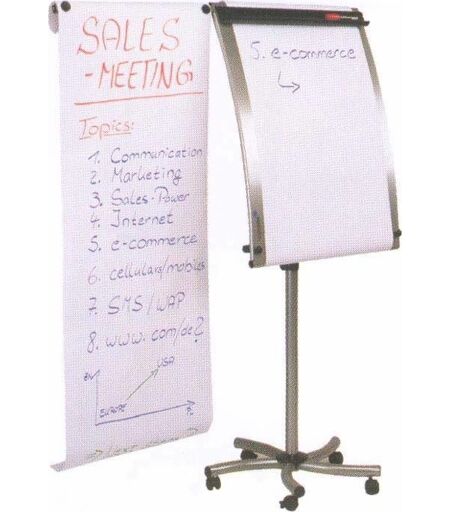 SALES
-MEETING
Topics:
1. Communication
2. Marketing
3. Sales-Power
4. Internet
5. e-commerce
6. cellulars/mobiles
7. SMS/WAP
8. www.com/de?
USA
EUROPE
5. e-commerce